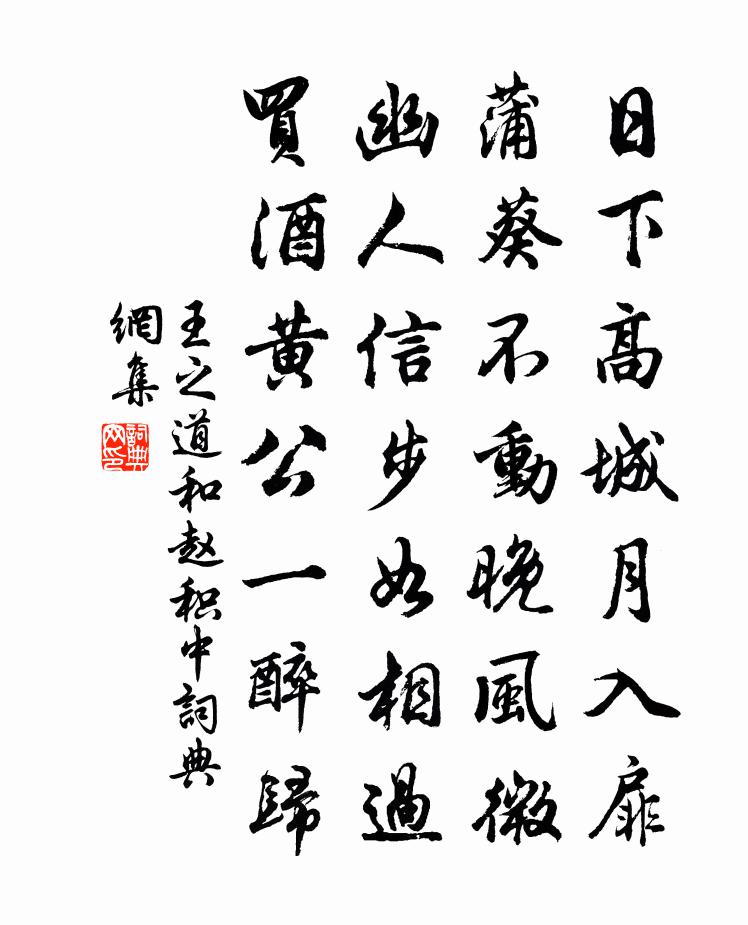 日下高城月入扉
蒲葵不動晚風微
幽人信步如相過
買酒黃公一醉歸
王之道和赵积中詞典
網集
詞典
网印